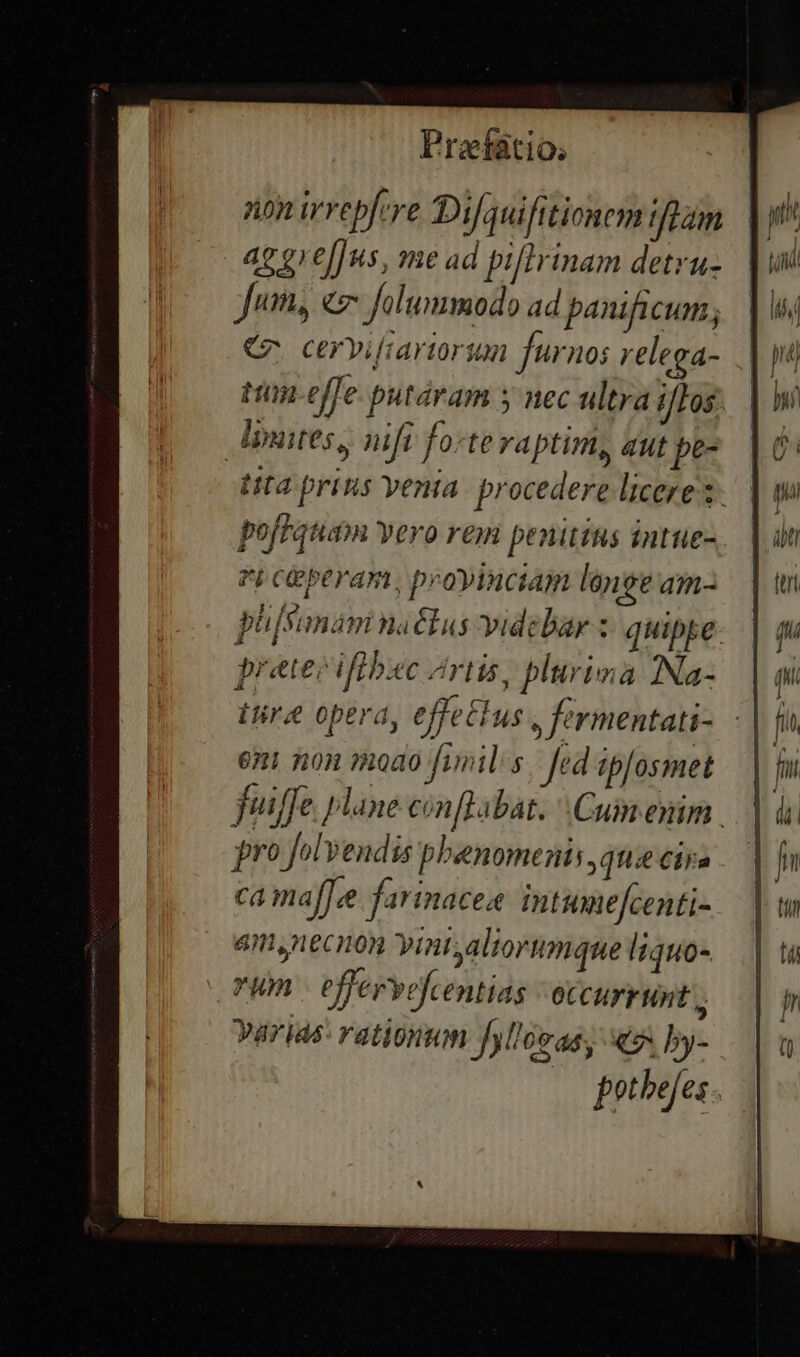 Præfatio.
non irrepsere Disquisitionem istam
aggressus, me ad pistrinam detru-
sum, & solummodo ad panificum,
& cervisiariorum furnos relega-
tum esse putâram ; nec ultra istos
limites, nisi forte raptim, aut pe-
tita prius venia procedere licere :
postquam vero rem penitius intue-
ri cœperam, provinciam longe am-
plissimam nactus videbar : quippe
præter isthæc Artis, plurima Na-
turæ opera, effectus, fermentati-
oni non modo similes sed ipsosmet
fuisse plane constabat. Cum enim
pro solvendis phænomenis, quæ circa
ca massæ farinaceæ intumescenti-
am, necnon vini, aliorumque liquo-
rum effervescentias occurrunt,
varias rationum syllogas, & hy-
potheses